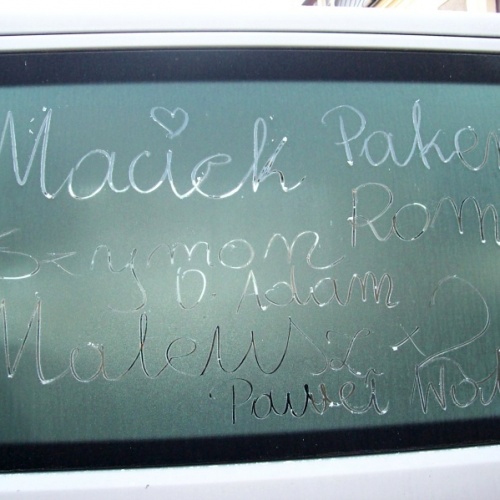 Maciek Paker
Rom
Szymon
D. Adam
Malew
Paweł Wo